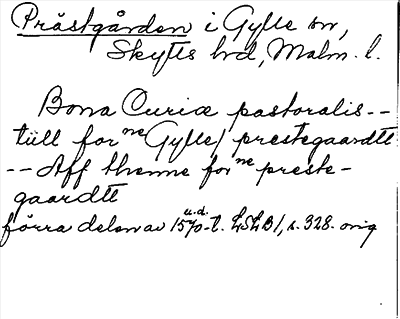 Prästgården i Gylle sn,
Skytts hrd, Malm. l.
Bona Curiæ pastoralis --
tiill for ne Gylle/ prestegaardtt
-- Aff thenne for ne preste-
gaardtt
förra delen av 1570-t. u.d. LSHB1, s. 328. orig